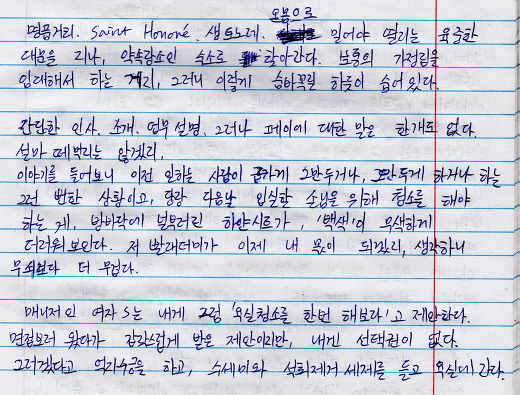 온몸으로
명품거리. Saint Honoré. 생또노레. 밀어야 열리는 육중한
대문을 지나, 약속장소인 숙소로 찾아간다. 보통의 가정집을
임대해서 하는 게리, 그러니 이렇게 숨바꼭질 하듯이 숨어 있다.
간단한 인사, 소개, 업무 설명. 그러나 페이에 대한 말은 한개도 없다.
설마 떼먹히는 않겠지,
이야기를 들어보니 이전 일하는 사람이 급하게 그만두거나, 그만두게 하거나 하는
그런 뻔한 상황이고, 당장 다음날 입실할 손님을 위해 청소를 해야
하는 게, 방바닥에 널부러진 하얀시트가, '백색'이 무색하게
더러워 보인다. 저 빨래더미가 이제 내 몫이 되겠지, 생각하니
무쇠보다 더 무겁다.
매니저인 여자 S는 내게 그럼 '욕실청소를 한번 해보라'고 제안한다.
면접보러 왔다가 갑작스럽게 받은 제안이지만, 내겐 선택권이 없다.
그러겠다고 억지수긍을 하고, 수세미와 석회제거 세제를 들고 욕실에 간다.